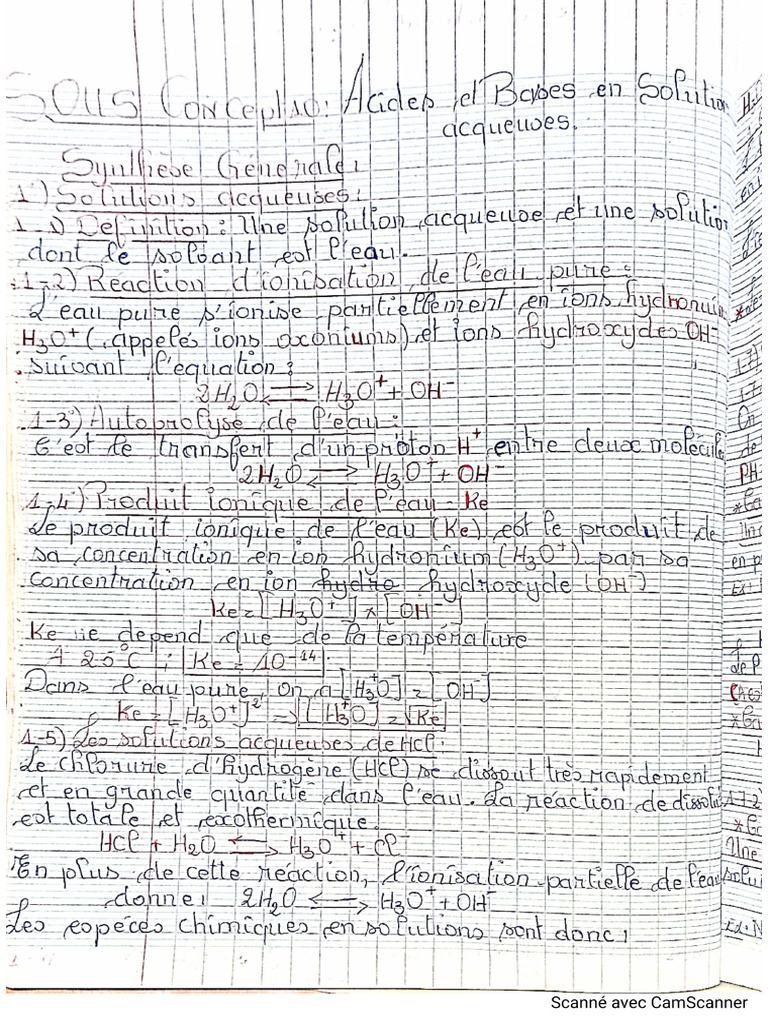 Sous Concept 10: Acides et Bases en Solution
acqueuses.
Synthèse Génerale:
1°) Solutions acqueuses:
1-1) Definition: Une solution acqueuse et une solution
dont le solvant est l'eau.
1-2) Réaction d'ionisation de l'eau pure:
L'eau pure s'ionise partiellement en ions hydronium
H₃O⁺ (appelés ions oxoniums) et ions hydroxcydes OH⁻
suivant l'equation:
2H₂O ⇌ H₃O⁺ + OH⁻
1-3°) Autoprolyse de l'eau:
C'est le transfert d'un proton H⁺ entre deux molécule
2H₂O ⇌ H₃O⁺ + OH⁻
1-4°) Produit ionique de l'eau - Ke
Le produit ionique de l'eau (Ke) est le produit de
sa concentration en ion hydronium (H₃O⁺) par sa
concentration en ion hydro hydroxcyde (OH⁻)
Ke = [H₃O⁺] x [OH⁻]
Ke ne depend que de la température
A 25°C ; Ke = 10⁻¹⁴
Dans l'eau pure, on a [H₃O⁺] = [OH⁻]
Ke = [H₃O⁺]² => [H₃O⁺] = √Ke
1-5) Les solutions acqueuses de HCl:
Le chlorure d'hydrogène (HCl) se dissout très rapidement
et en grande quantité dans l'eau. La réaction de dissolu
est totale et exothermique.
HCl + H₂O ⇌ H₃O⁺ + Cl⁻
En plus de cette réaction, l'ionisation partielle de l'eau
donne: 2H₂O ⇌ H₃O⁺ + OH⁻
Les espéces chimiques en solutions sont donc:
Scanné avec CamScanner